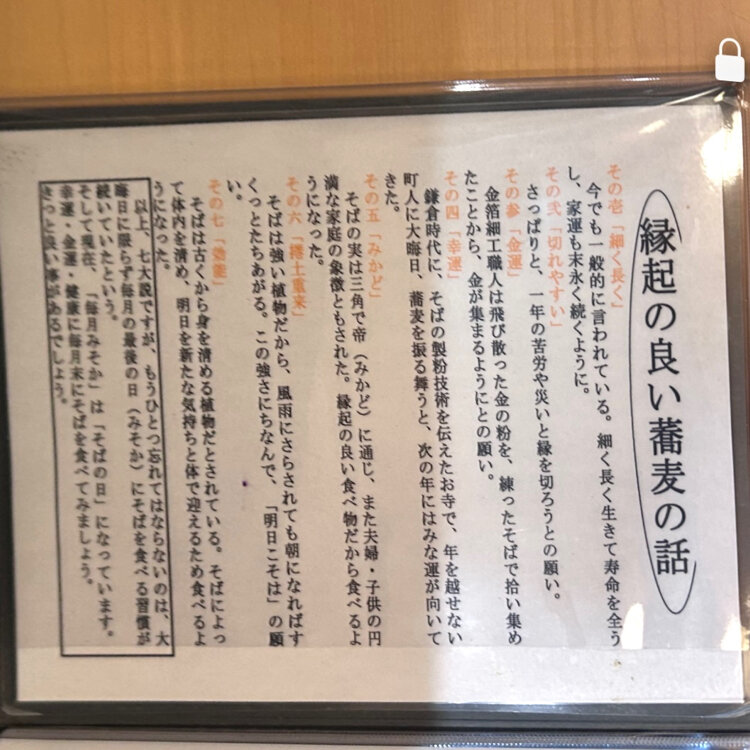 縁起の良い蕎麦の話
その壱「細く長く」
今でも一般的に言われている。細く長く生きて寿命を全う
し、家運も末永く続くように。
その弐「切れやすい」
さっぱりと、一年の苦労や災いと縁を切ろうとの願い。
その参「金運」
金箔細工職人は飛び散った金の粉を、練ったそばで拾い集め
たことから、金が集まるようにとの願い。
その四「幸運」
鎌倉時代に、そばの製粉技術を伝えたお寺で、年を越せない
町人に大晦日、蕎麦を振る舞うと、次の年にはみな運が向いて
きた。
その五「みかど」
そばの実は三角で帝（みかど）に通じ、また夫婦・子供の円
満な家庭の象徴ともされた。縁起の良い食べ物だから食べるよ
うになった。
その六「捲土重来」
そばは強い植物だから、風雨にさらされても朝になればす
くっとたちあがる。この強さにちなんで、「明日こそは」の願
い。
その七「効能」
そばは古くから身を清める植物だとされている。そばによっ
て体内を清め、明日を新たな気持ちと体で迎えるため食べるよ
うになった。
以上、七大説ですが、もうひとつ忘れてはならないのは、大
晦日に限らず毎月の最後の日（みそか）にそばを食べる習慣が
続いていたという。
そして現在、「毎月みそか」は「そばの日」になっています。
幸運・金運・健康に毎月末にそばを食べてみましょう。
きっと良い事があるでしょう。